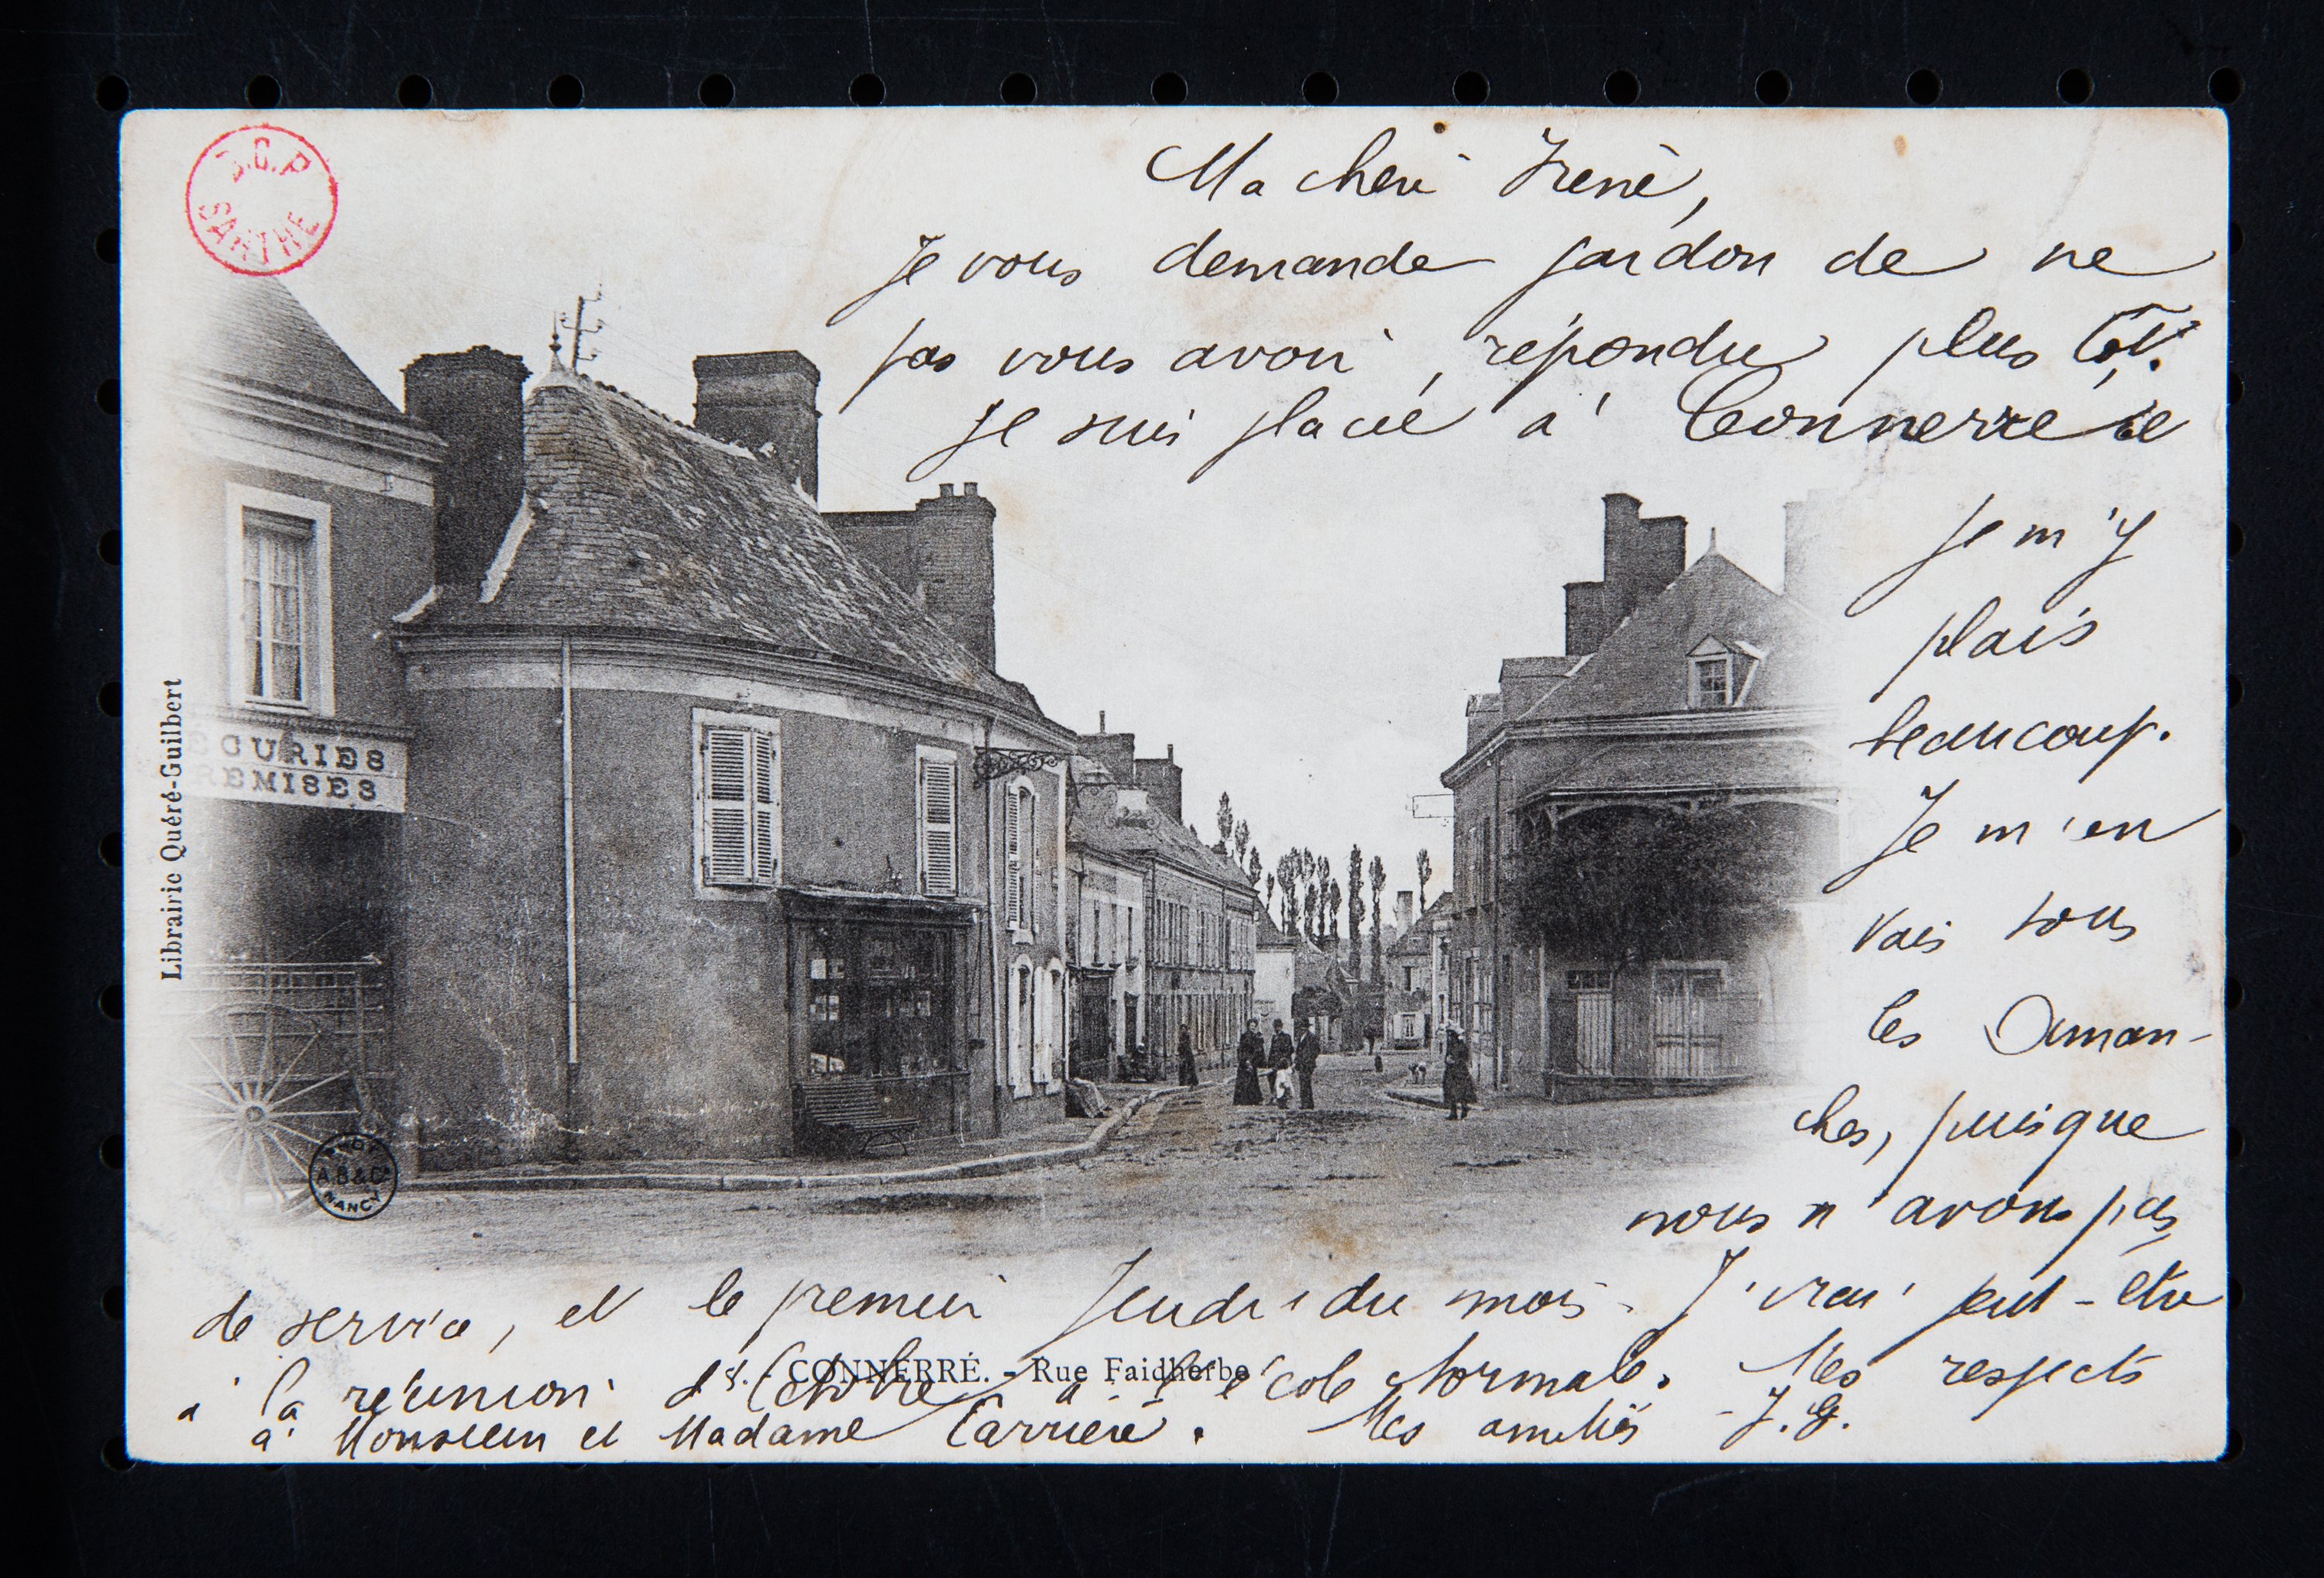 B.C.P
SARTHE
Ma cheré Irène,
Je vous demande pardon de ne
pas vous avoir répondu plus tôt.
Je suis placée à Connerré et
je m'y
plais
beaucoup.
Je m'en
vais tous
les Diman-
ches, puisque
nous n'avons pas
de service, et le premier Jeudi du mois. J'irai peut-être
à la réunion d'Octobre à l'école Normale. Mes respects
à Monsieur et Madame Carrière. Mes amitiés - J. G.
ECURIES
REMISES
Librairie Quéré-Guilbert
A.B & Cie
NANCY
CONNERRÉ. - Rue Faidherbe